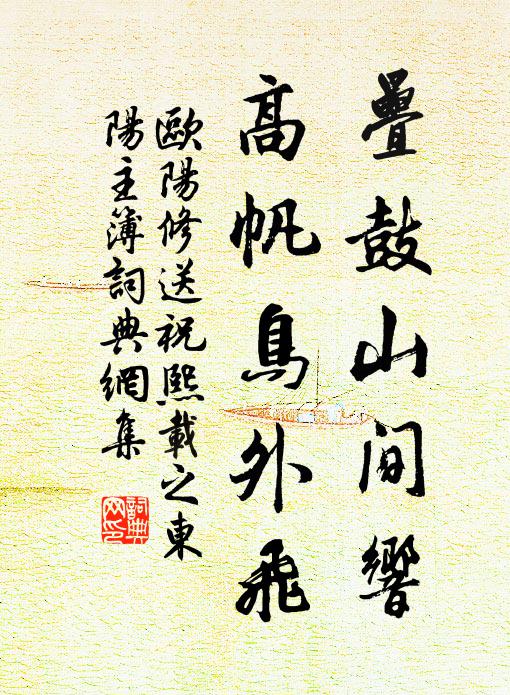 疊鼓山間響
高帆鳥外飛
歐陽修送祝熙載之東
陽主簿詞典網集
詞典
网印